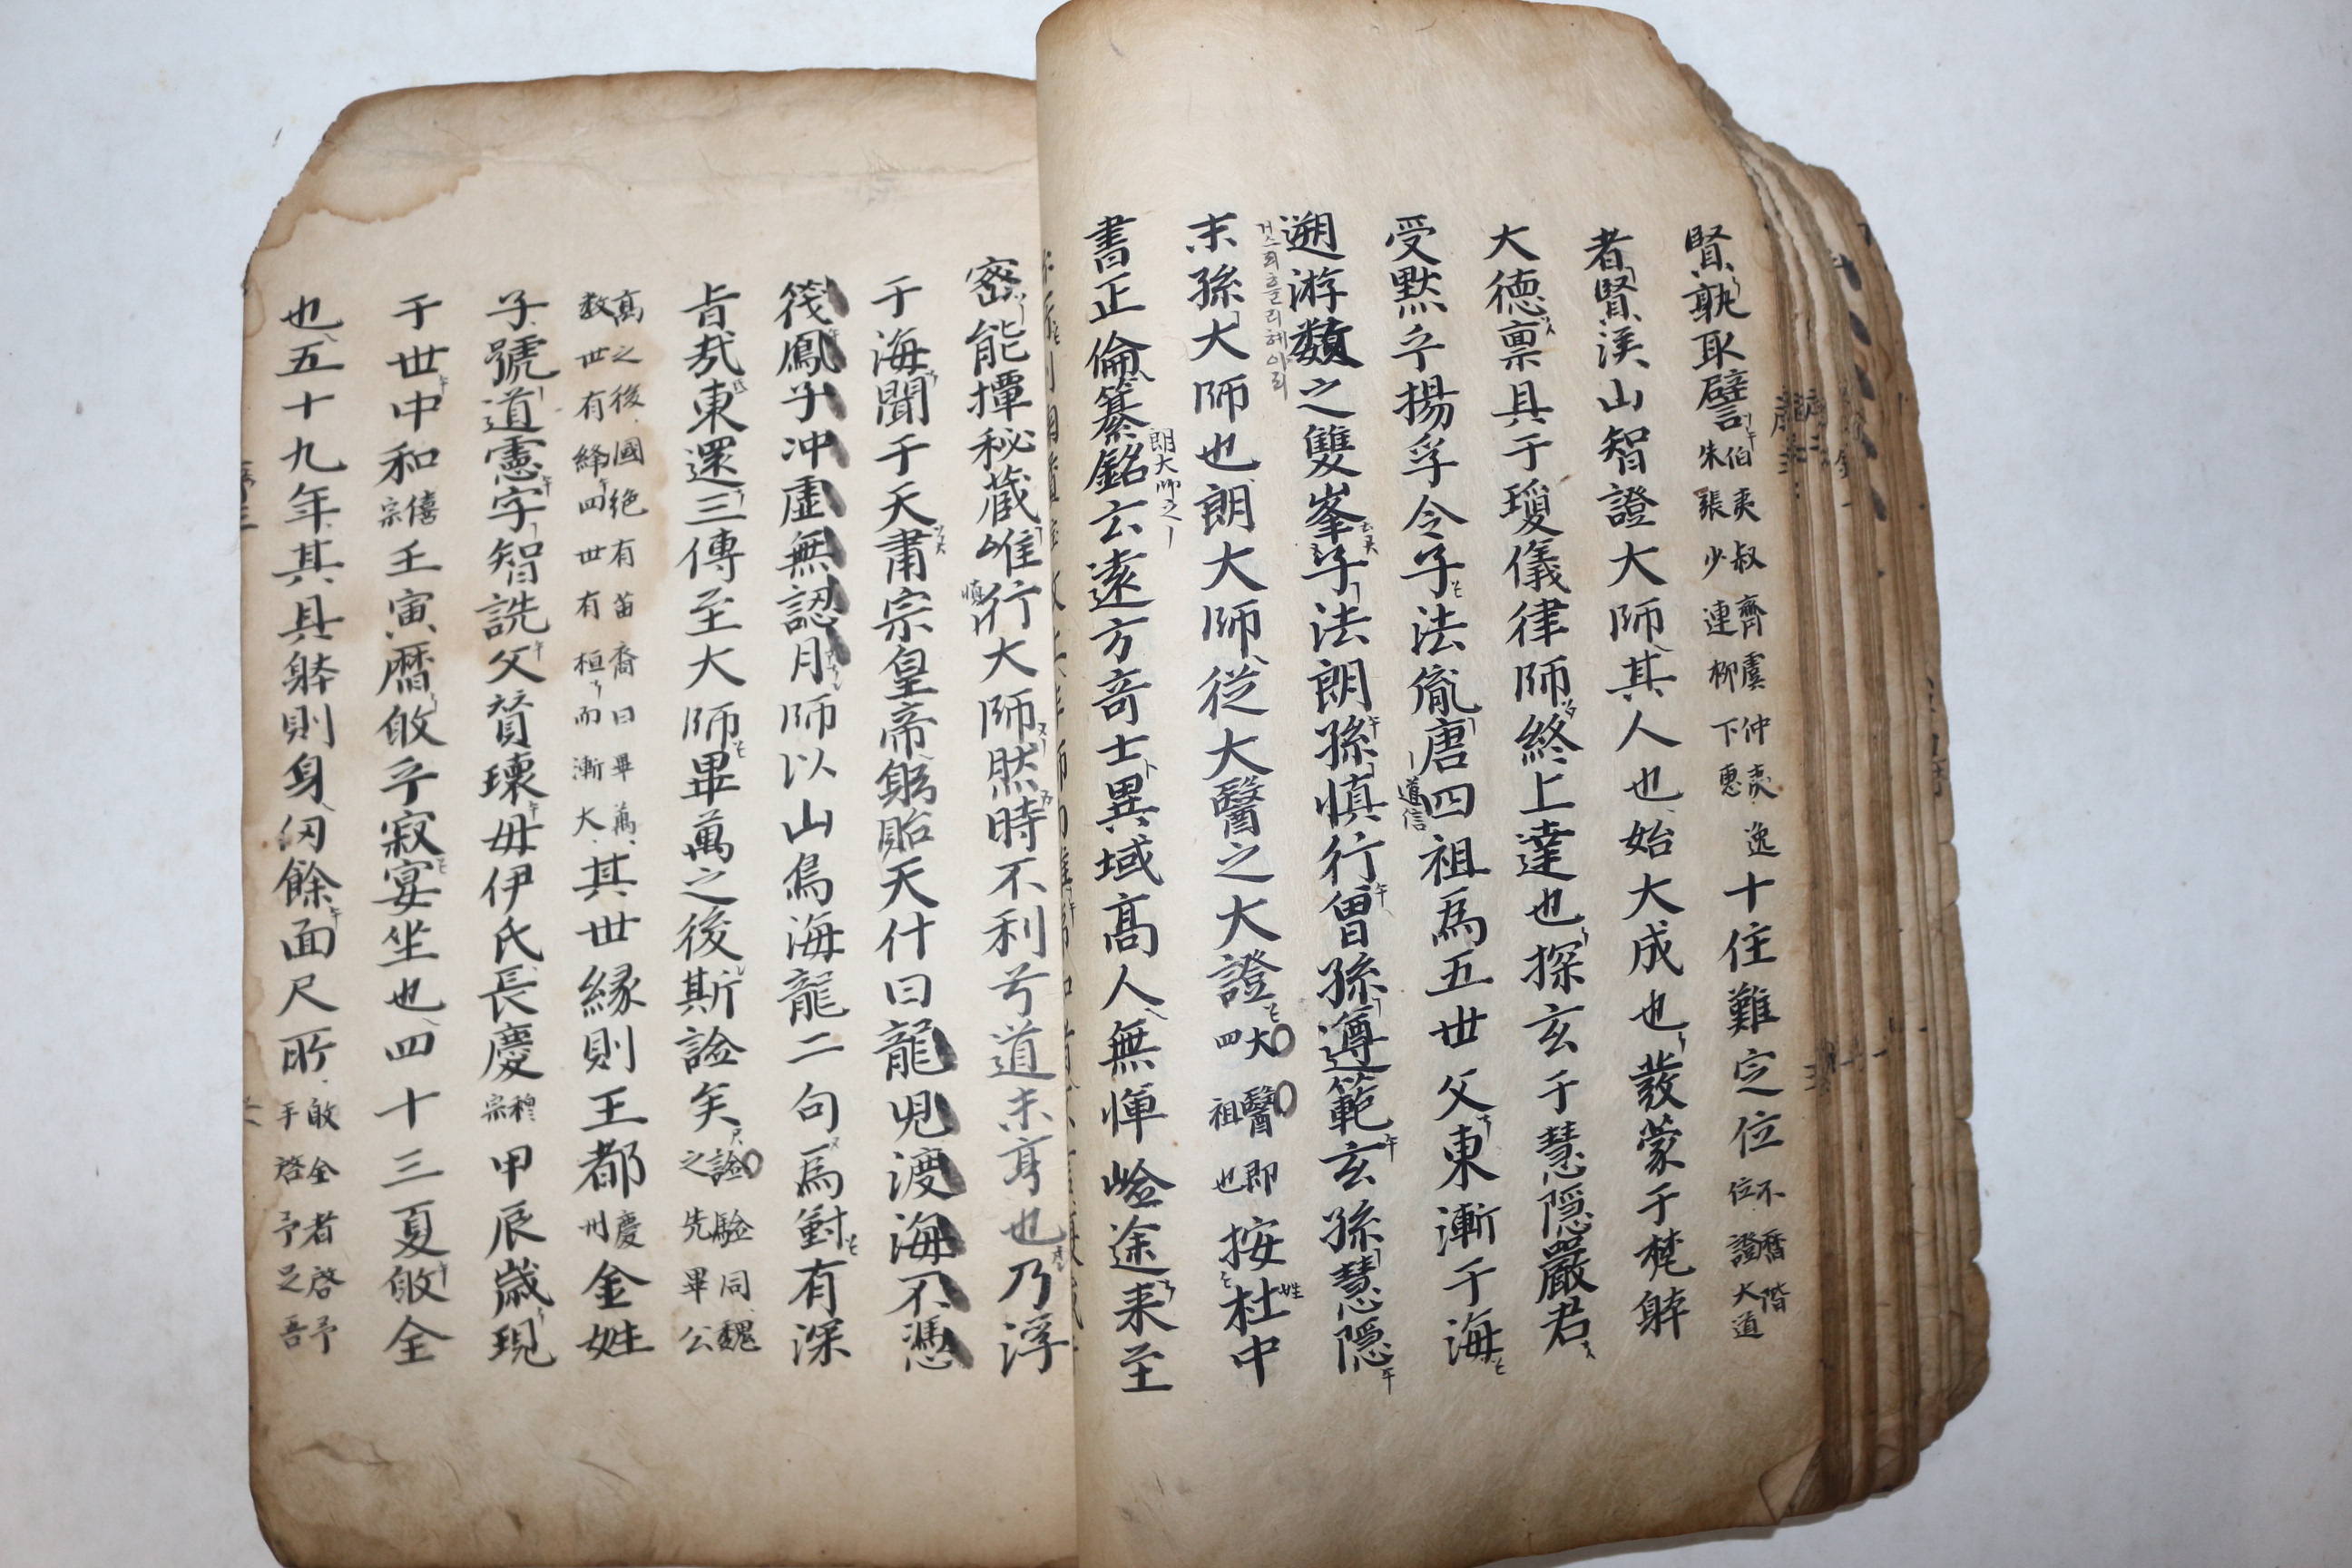 賢孰取譬 伯夷叔齊虞仲夷逸朱張少連柳下惠 十住難定位 不曆階位證大道
者賢溪山智證大師其人也始大成也發蒙于梵躰
大德禀具于瓊儀律師終上達也探玄于慧隠嚴君
受黙乎揚孚令子法胤唐四祖爲五世父東漸于海
道信
遡游數之雙峯子法朗孫慎行曾孫遵範玄孫慧隠
거스리흘리헤아리
末孫大師也朗大師從大醫之大證 大醫即四祖也 按杜中
姓
書正倫纂銘云遠方竒士異域髙人無憚嶮途来至
朗大師之
密能撣秘蔵唯行大師然時不利兮道未亨也乃浮
慎
于海聞于天肅宗皇帝躬貽天什曰龍児渡海不憑
筏鳳子冲虚無認月師以山鳥海龍二句爲對有深
旨㢤東還三傳至大師畢萬之後斯譣矣 譣驗同魏之先畢公
髙之後國绝有苗裔曰畢萬数世有絳四世有桓而漸大 其世縁則王都 慶州 金姓
子號道憲字智詵父賛瓌毋伊氏長慶 穆宗 甲辰歳現
于世中和 僖宗 壬寅曆㪣乎寂宴坐也四十三夏㪣全
也五十九年其具躰則身仞餘面尺所 㪣全者啓予手啓予足吾